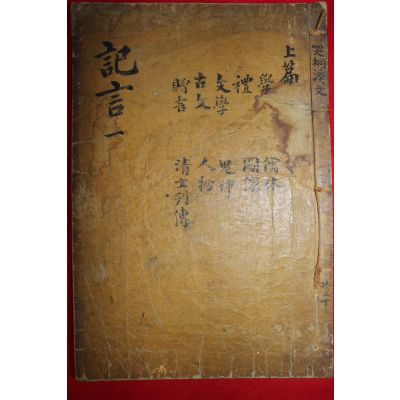 哭桐溪文
上篇
學
禮
文學
古文
贈言
儒林
鬼神
人物
清士列傳
記言 一